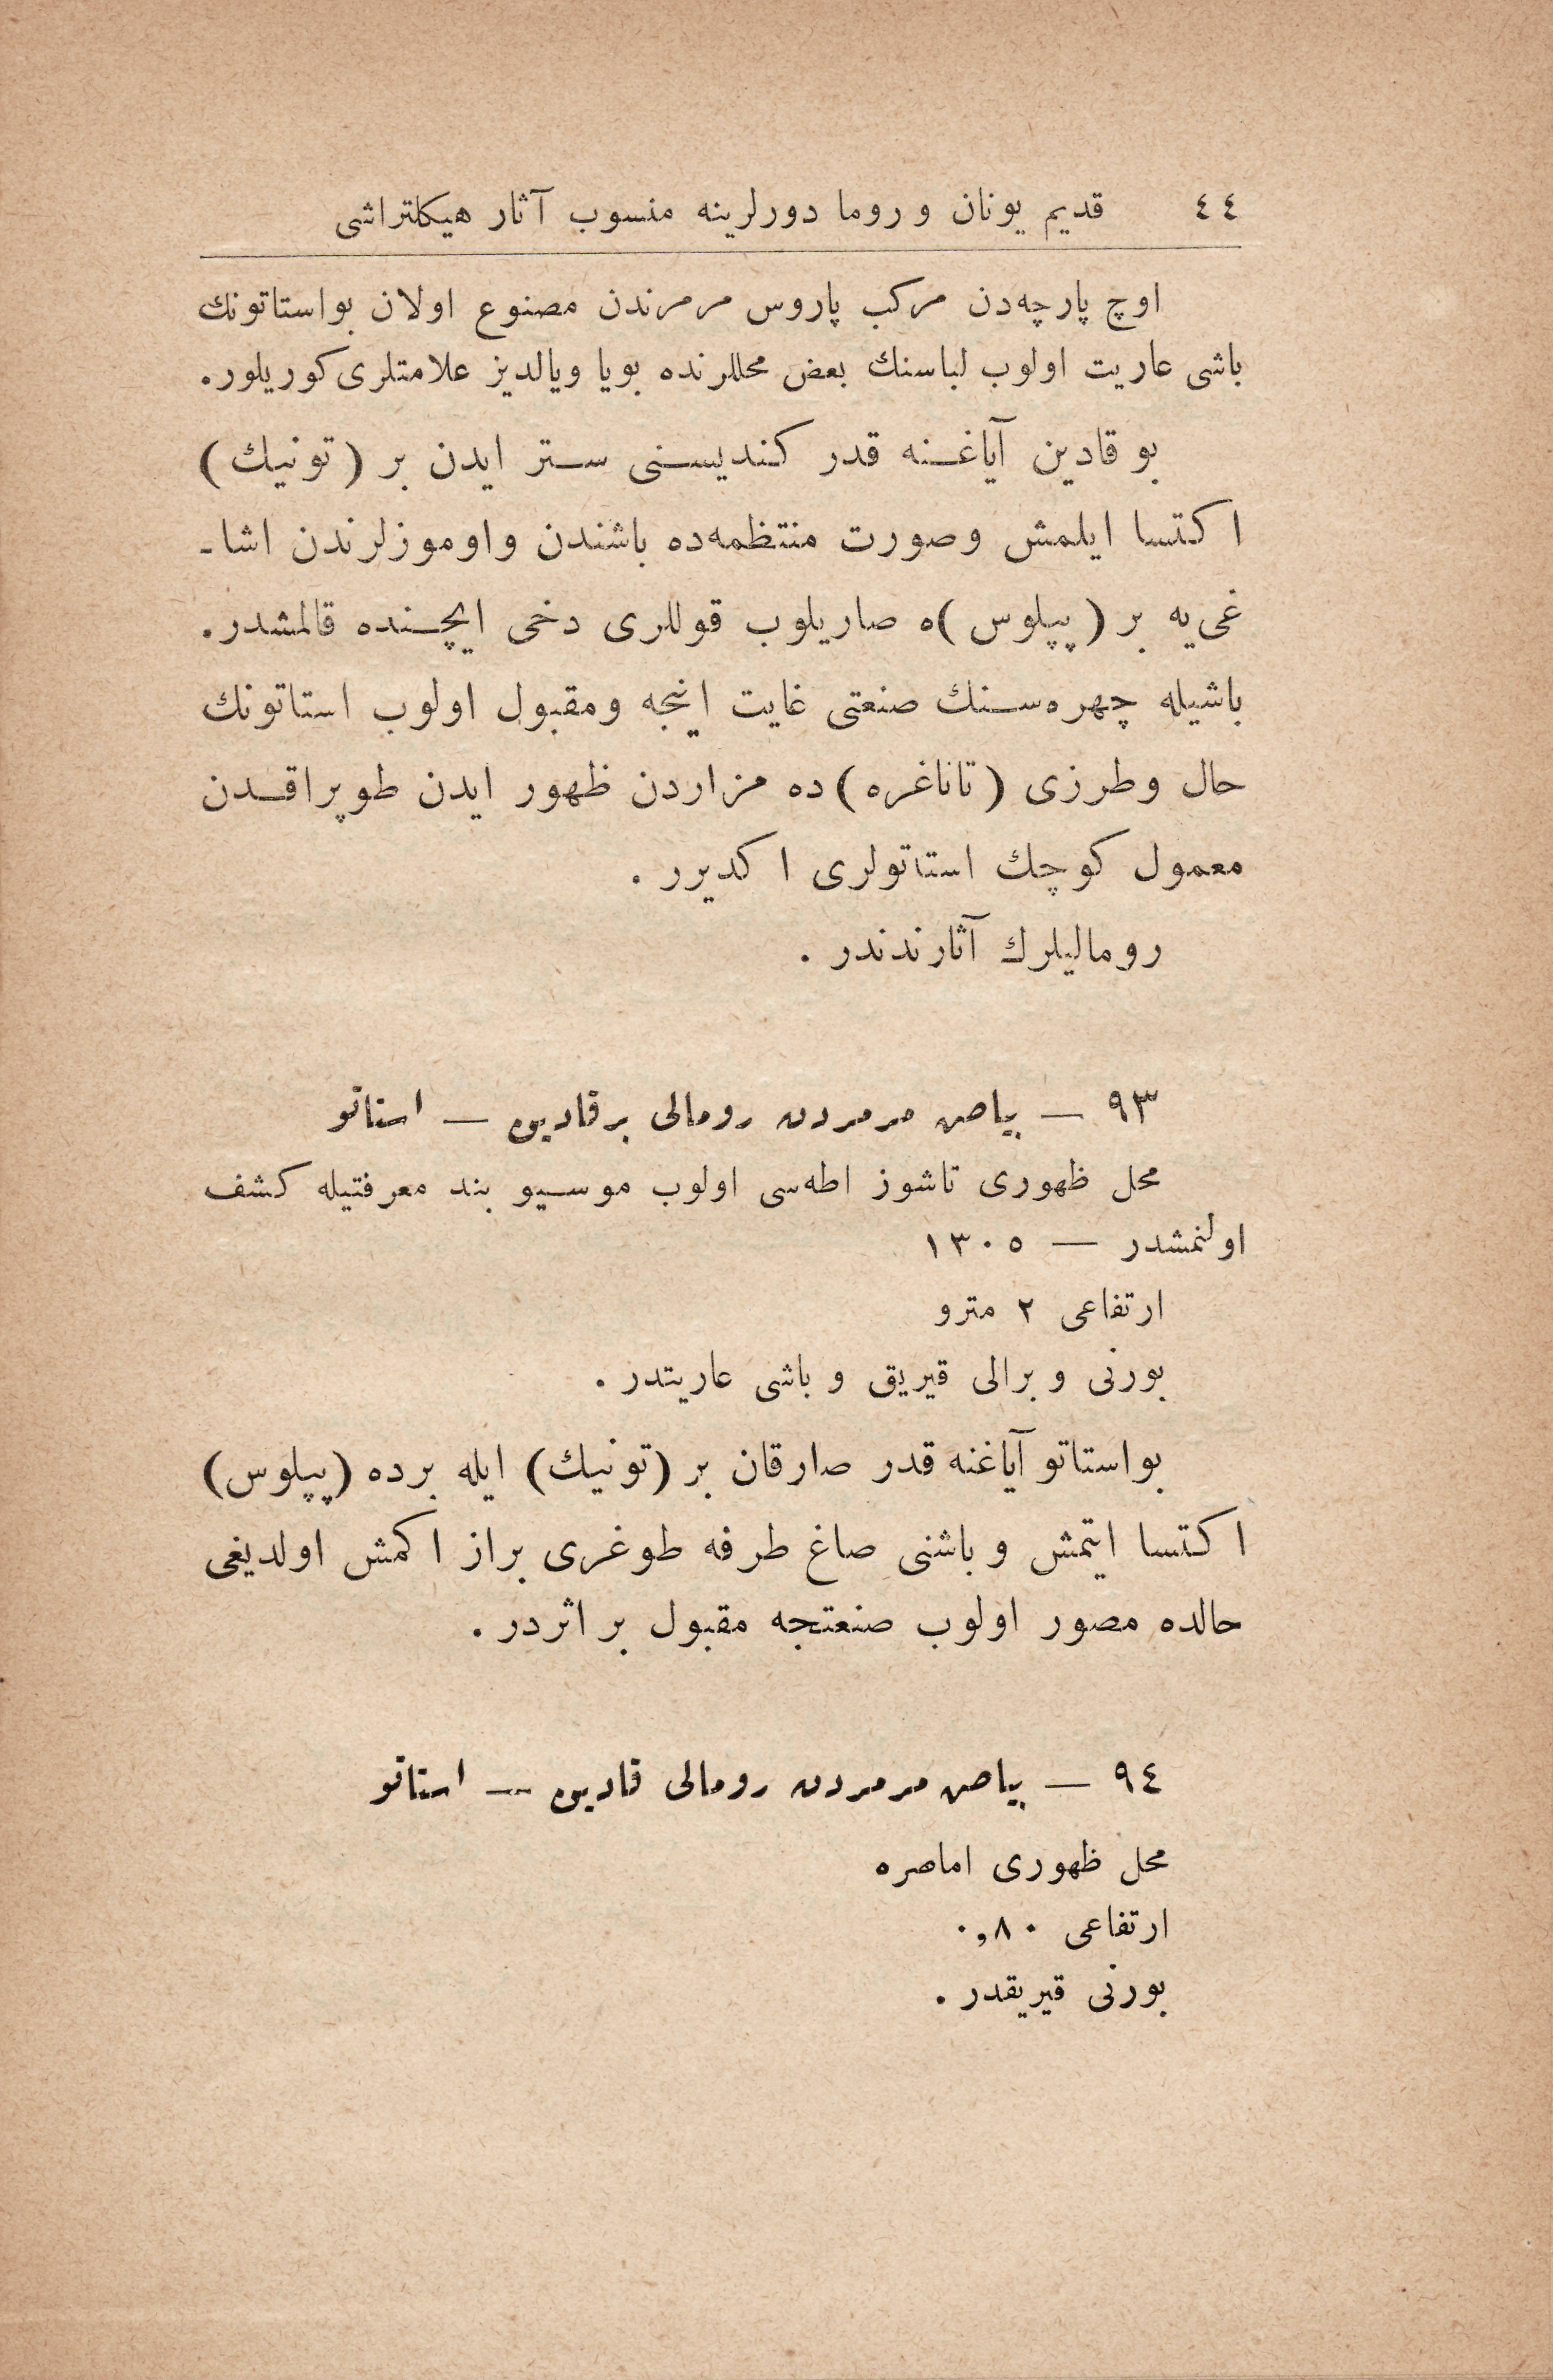 ٤٤ قديم يونان و روما دورلرينه منسوب آثار هيكلتراشی
اوچ پارچه‌دن مركب پاروس مرمرندن مصنوع اولان بو استاتونك
باشی عاريت اولوب لباسنك بعض محللرنده بويا ويالديز علامتلری كوريلور.
بو قادين آياغنه قدر كنديسنی ستر ايدن بر (تونيك)
اكتسا ايلمش وصورت منتظمه‌ده باشندن واوموزلرندن اشا-
غی‌يه بر (پپلوس)ه صاريلوب قوللری دخی ايچنده قالمشدر.
باشيله چهره‌سنك صنعتی غايت اينجه ومقبول اولوب استاتونك
حال وطرزی (تاناغره)ده مزاردن ظهور ايدن طوپراقدن
معمول كوچك استاتولری اكديرر .
روماليلرك آثارندندر .
٩٣ — بياض مرمردن رومالی برقادين — استاتو
محل ظهوری تاشوز اطه‌سی اولوب موسيو بند معرفتيله كشف
اولنمشدر — ١٣٠٥
ارتفاعی ٢ مترو
بورنی و برالی قيريق و باشی عاريتدر .
بواستاتو آياغنه قدر صارقان بر (تونيك) ايله برده (پپلوس)
اكتسا ايتمش و باشنی صاغ طرفه طوغری براز اكمش اولديغی
حالده مصور اولوب صنعتجه مقبول بر اثردر .
٩٤ — بياض مرمردن رومالی قادين — استاتو
محل ظهوری اماصره
ارتفاعی ٠,٨٠
بورنی قيريقدر .